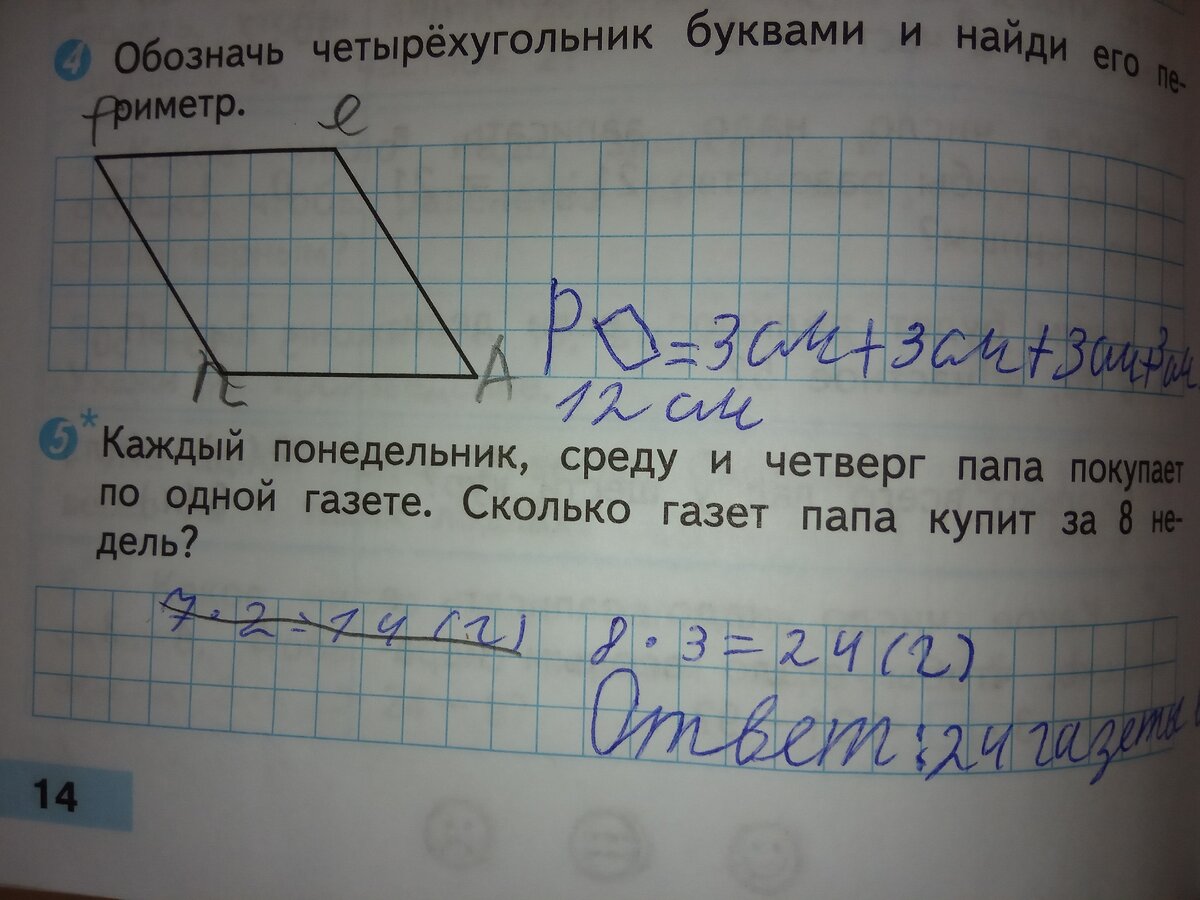 4 Обозначь четырёхугольник буквами и найди его пе-
риметр.
e
A
P = 3 см + 3 см + 3 см + 3 см
12 см
5* Каждый понедельник, среду и четверг папа покупает
по одной газете. Сколько газет папа купит за 8 не-
дель?
7 · 2 = 14 (г) 8 · 3 = 24 (г)
Ответ: 24 газеты
14